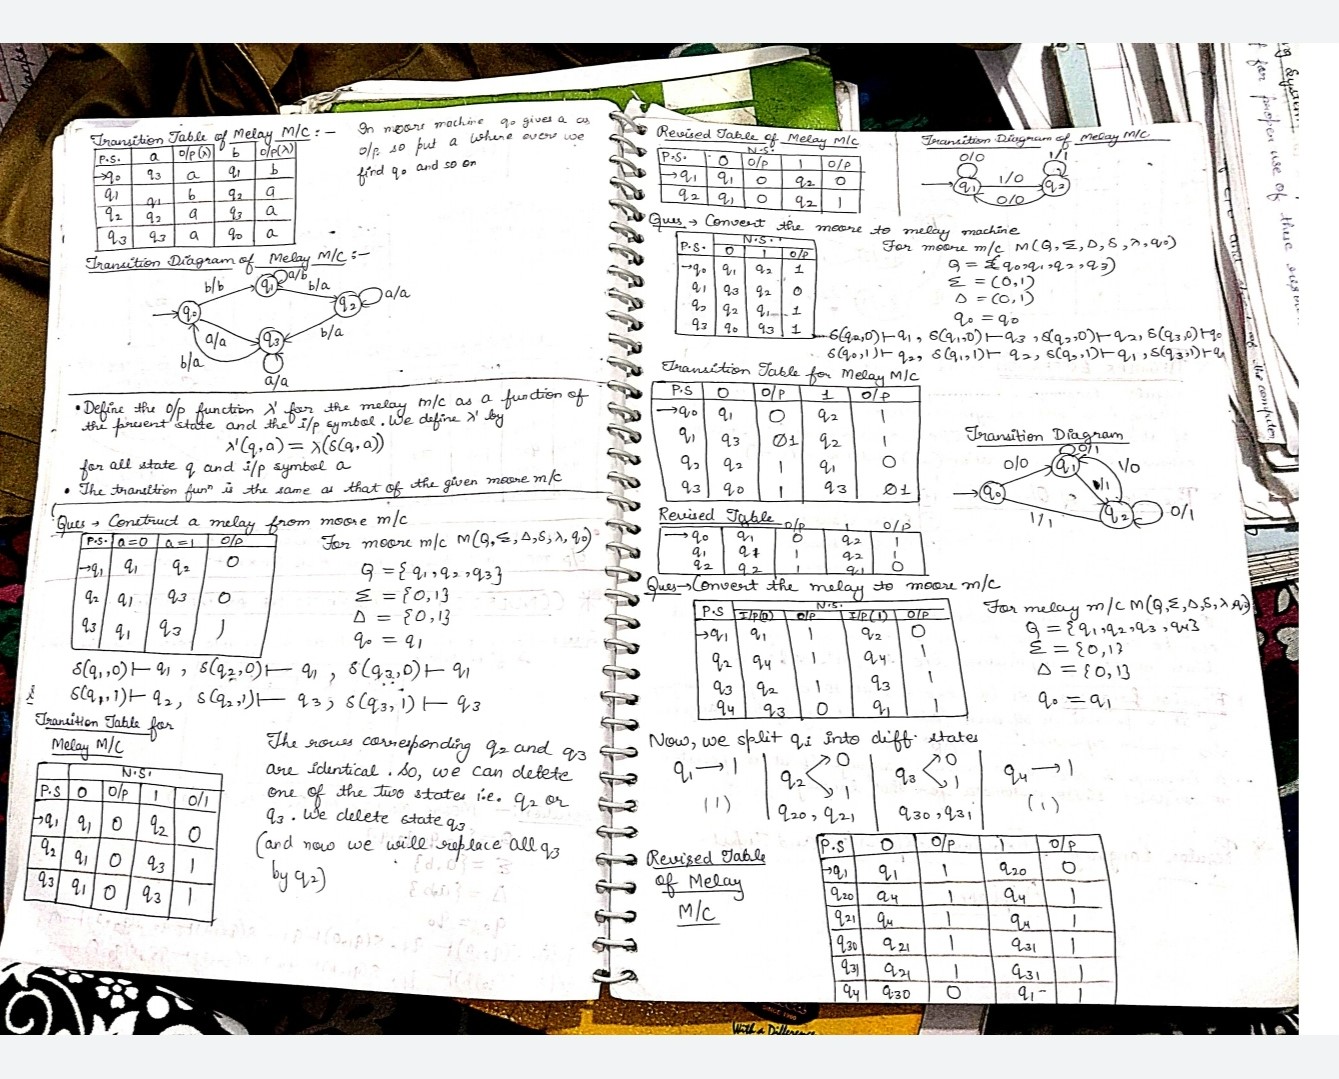 Transition Table of Melay M/C :-
P.S. a O/P(λ) b O/P(λ)
→q0 q3 a q1 b
q1 q1 b q2 a
q2 q2 a q3 a
q3 q3 a q0 a
In moore machine q0 gives a as
o/p so put a where ever we
find q0 and so on
Transition Diagram of Melay M/C :-
b/b q1 a/b b/a
q0 q2 a/a
a/a q3 b/a
b/a
a/a
• Define the O/p function λ' for the melay m/c as a function of
the present state and the i/p symbol. We define λ' by
λ'(q,a) = λ(δ(q,a))
for all state q and i/p symbol a
• The transition funⁿ is the same as that of the given moore m/c
Ques → Construct a melay from moore m/c
P.S. a=0 a=1 O/P
→q1 q1 q2 0
q2 q1 q3 0
q3 q1 q3 1
For moore m/c M(Q,Σ,Δ,δ,λ,q0)
Q = {q1,q2,q3}
Σ = {0,1}
Δ = {0,1}
q0 = q1
δ(q1,0)⊢ q1 , δ(q2,0)⊢ q1 , δ(q3,0)⊢ q1
δ(q1,1)⊢ q2, δ(q2,1)⊢ q3, δ(q3,1)⊢ q3
Transition Table for
Melay M/C
N.S.
P.S 0 O/P 1 O/1
→q1 q1 0 q2 0
q2 q1 0 q3 1
q3 q1 0 q3 1
The rows corresponding q2 and q3
are identical. So, we can delete
one of the two states i.e. q2 or
q3. We delete state q3
(and now we will replace all q3
by q2)
Revised Table of Melay M/C
N.S.
P.S. 0 O/P 1 O/P
→q1 q1 0 q2 0
q2 q1 0 q2 1
Transition Diagram of Melay M/C
0/0 1/1
q1 1/0 q2
0/0
Ques → Convert the moore to melay machine
N.S.
P.S. 0 1 O/P
→q0 q1 q2 1
q1 q3 q2 0
q2 q2 q1 1
q3 q0 q3 1
For moore m/c M(Q,Σ,Δ,δ,λ,q0)
Q = {q0,q1,q2,q3)
Σ = (0,1)
Δ = (0,1)
q0 = q0
δ(q0,0)⊢q1, δ(q1,0)⊢q3, δ(q2,0)⊢q2, δ(q3,0)⊢q0
δ(q0,1)⊢ q2, δ(q1,1)⊢ q2, δ(q2,1)⊢ q1, δ(q3,1)⊢q
Transition Table for Melay M/C
P.S 0 O/P 1 O/P
→q0 q1 0 q2 1
q1 q3 1 q2 1
q2 q2 1 q1 0
q3 q0 1 q3 1
Transition Diagram
0/1
0/0 q1 1/0
q0 1/1
1/1 q2 0/1
Revised Table
0/p 1 0/p
→q0 q1 0 q2 1
q1 q1 1 q2 1
q2 q2 1 q1 0
Ques→Convert the melay to moore m/c
N.S.
P.S I/P(0) O/P I/P(1) O/P
→q1 q1 1 q2 0
q2 q4 1 q4 1
q3 q2 1 q3 1
q4 q3 0 q1 1
For melay m/c M(Q,Σ,Δ,δ,λ,q0)
Q = {q1,q2,q3,q4}
Σ = {0,1}
Δ = {0,1}
q0 = q1
Now, we split qi into diff. states
q1→1 q2 0 1 q3 0 1 q4→1
(1) q20, q21 q30, q31 (1)
Revised Table
of Melay
M/C
P.S 0 O/P 1 O/P
→q1 q1 1 q20 0
q20 q4 1 q4 1
q21 q4 1 q4 1
q30 q21 1 q31 1
q31 q21 1 q31 1
q4 q30 0 q1 1
for proper use of these
the computer
With a Difference